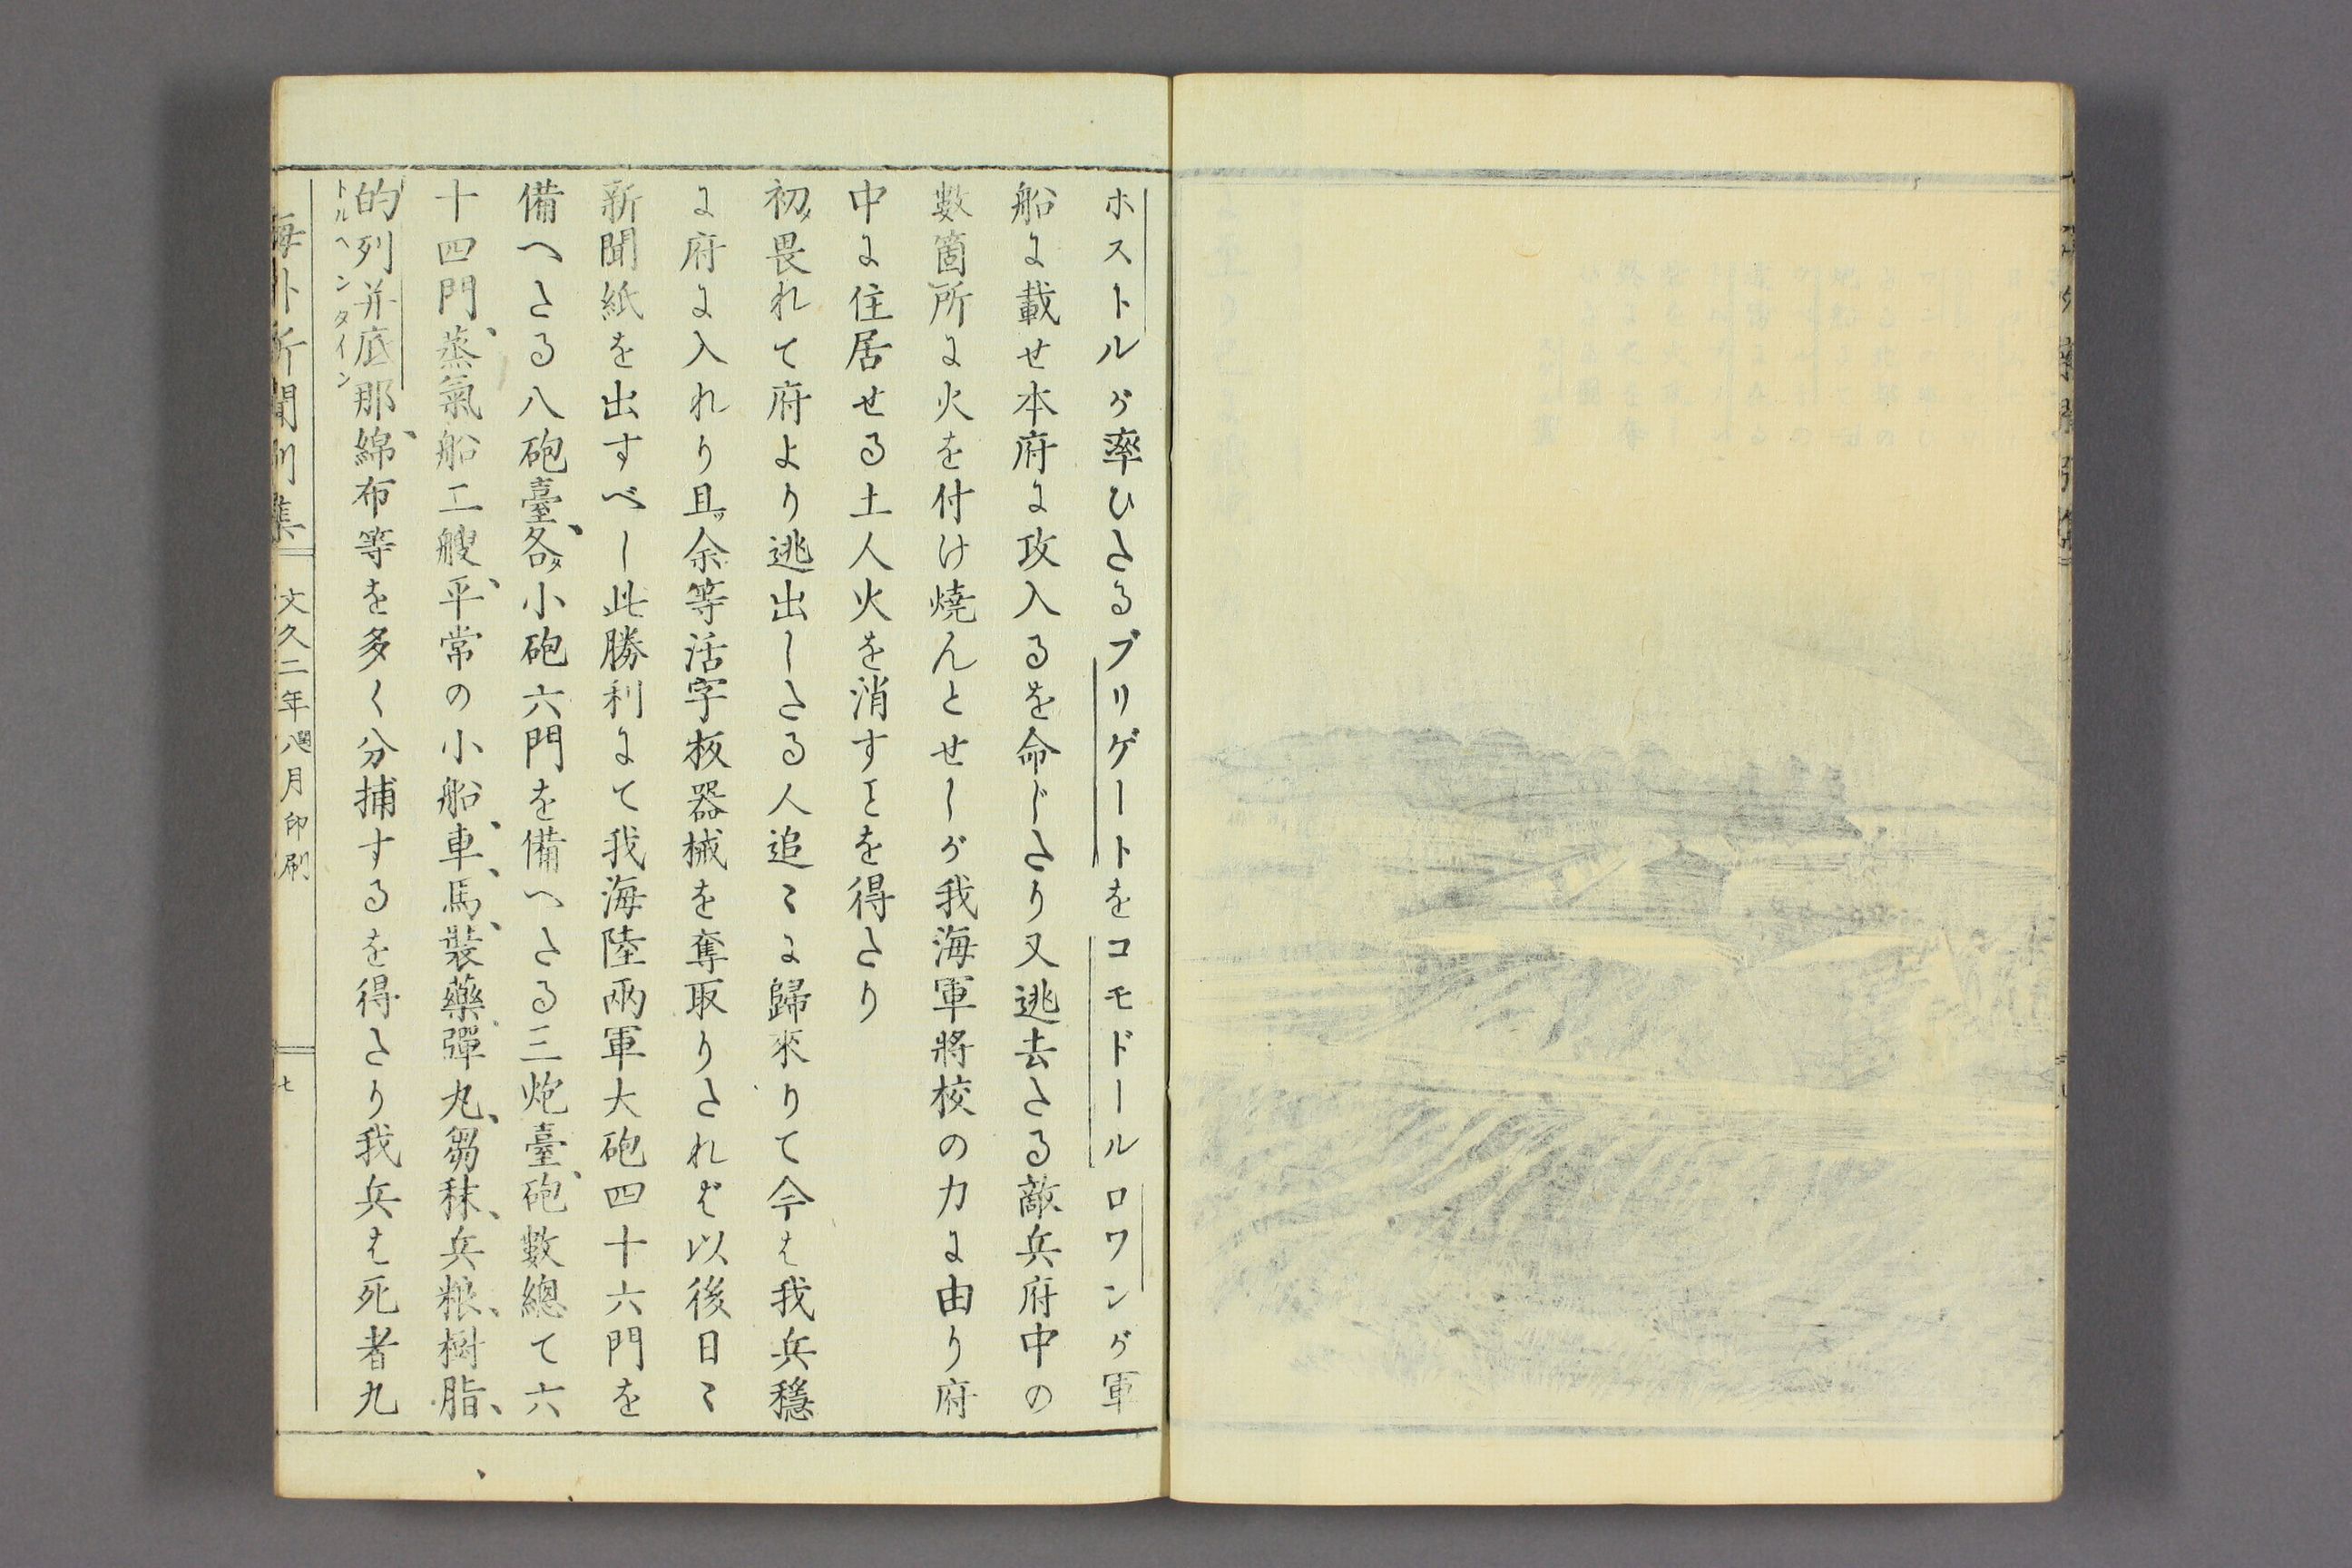 ホストルガ率ひたるブリゲートをコモドールロワンガ軍
船に載せ本府に攻入るを命じたり又逃去たる敵兵府中の
數箇所に火を付け燒んとせしが我海軍將校の力に由り府
中に住居せる土人火を消すことを得たり
初メ畏れて府より逃出したる人追々に歸來りて今は我兵穩
に府に入れり且ツ余等活字板器械を奪取りたれば以後日々
新聞紙を出すべし此勝利にて我海陸兩軍大砲四十六門を
備へたる八砲臺、各〻小砲六門を備へたる三炮臺、砲數總て六
十四門、蒸氣船二艘、平常の小船、車、馬、裝藥彈丸、芻秣、兵粮、樹脂、
的列并底那、綿布等を多く分捕するを得たり我兵は死者九
トルヘンタイン
海外新聞別集
文久二年閏八月印刷
七